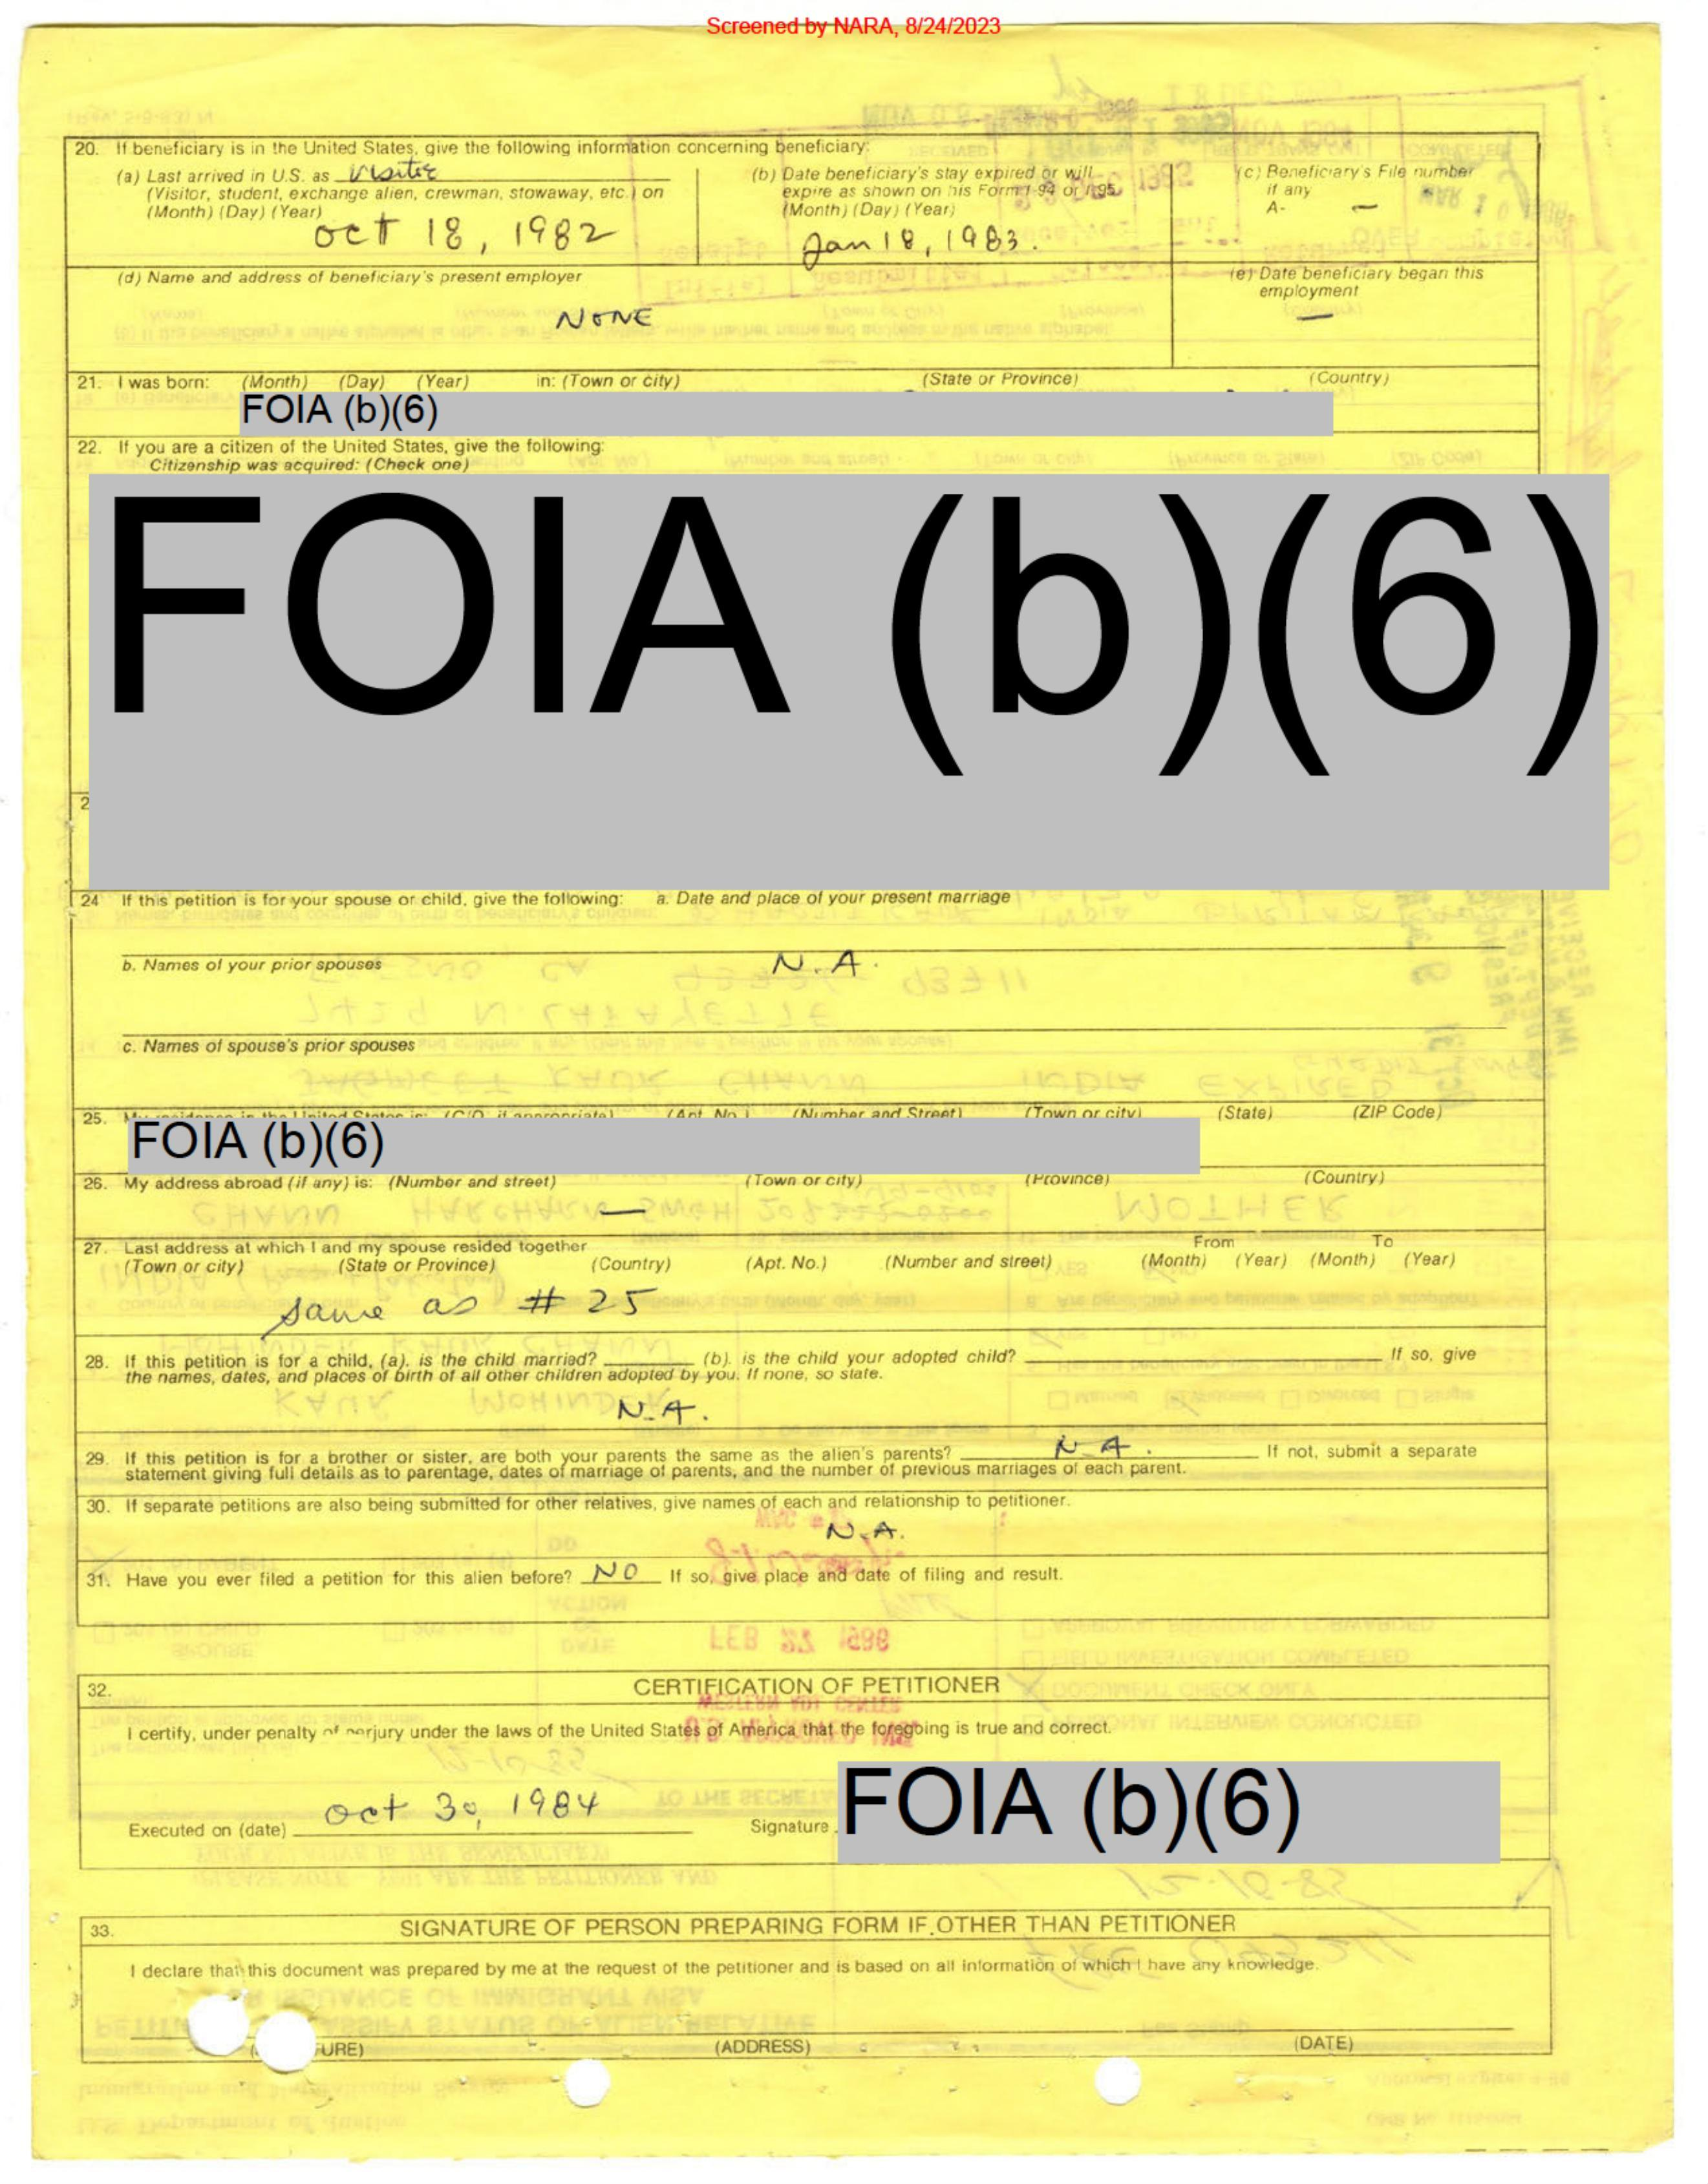 Screened by NARA, 8/24/2023
20. If beneficiary is in the United States, give the following information concerning beneficiary:
(a) Last arrived in U.S. as visitor
(Visitor, student, exchange alien, crewman, stowaway, etc.) on
(Month) (Day) (Year)
oct 18, 1982
(b) Date beneficiary's stay expired or will
expire as shown on his Form I-94 or I-95
(Month) (Day) (Year)
Jan 18, 1983.
(c) Beneficiary's File number
if any
A- —
(d) Name and address of beneficiary's present employer
NONE
(e) Date beneficiary began this
employment
—
21. I was born: (Month) (Day) (Year) in: (Town or city) (State or Province) (Country)
FOIA (b)(6)
22. If you are a citizen of the United States, give the following:
Citizenship was acquired: (Check one)
FOIA (b)(6)
2
24 If this petition is for your spouse or child, give the following: a. Date and place of your present marriage
b. Names of your prior spouses N.A.
c. Names of spouse's prior spouses
25. My residence in the United States is: (C/O, if appropriate) (Apt. No.) (Number and Street) (Town or city) (State) (ZIP Code)
FOIA (b)(6)
26. My address abroad (if any) is: (Number and street) (Town or city) (Province) (Country)
—
27. Last address at which I and my spouse resided together From To
(Town or city) (State or Province) (Country) (Apt. No.) (Number and street) (Month) (Year) (Month) (Year)
same as # 25
28. If this petition is for a child, (a). is the child married? (b). is the child your adopted child? If so, give
the names, dates, and places of birth of all other children adopted by you. If none, so state.
N.A.
29. If this petition is for a brother or sister, are both your parents the same as the alien's parents? N A. If not, submit a separate
statement giving full details as to parentage, dates of marriage of parents, and the number of previous marriages of each parent.
30. If separate petitions are also being submitted for other relatives, give names of each and relationship to petitioner.
N.A.
31. Have you ever filed a petition for this alien before? NO If so, give place and date of filing and result.
32. CERTIFICATION OF PETITIONER
I certify, under penalty of perjury under the laws of the United States of America that the foregoing is true and correct.
Executed on (date) oct 30, 1984 Signature FOIA (b)(6)
33. SIGNATURE OF PERSON PREPARING FORM IF OTHER THAN PETITIONER
I declare that this document was prepared by me at the request of the petitioner and is based on all information of which I have any knowledge.
URE) (ADDRESS) (DATE)